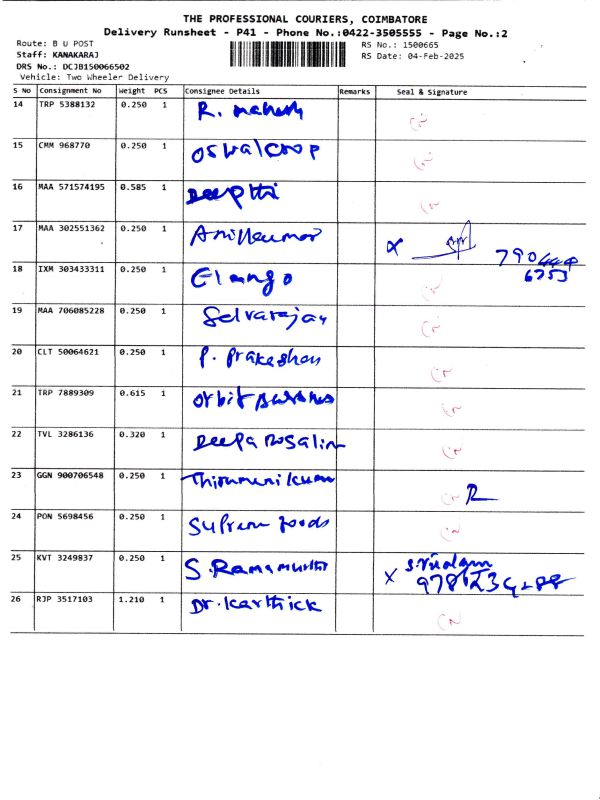 THE PROFESSIONAL COURIERS, COIMBATORE
Delivery Runsheet - P41 - Phone No.:0422-3505555 - Page No.:2
Route: B U POST RS No.: 1500665
Staff: KANAKARAJ RS Date: 04-Feb-2025
DRS No.: DCJB150066502
Vehicle: Two Wheeler Delivery
S No Consignment No Weight PCS Consignee Details Remarks Seal & Signature
14 TRP 5388132 0.250 1 R. mahesh
15 CMM 968770 0.250 1 Oswalcrop
16 MAA 571574195 0.585 1 Deepthi
17 MAA 302551362 0.250 1 Anilkumar X
18 IXM 303433311 0.250 1 Elango
19 MAA 706085228 0.250 1 Selvarajan
20 CLT 50064621 0.250 1 P. Prakashan
21 TRP 7889309 0.615 1 Orbit
22 TVL 3286136 0.320 1 Deepa Rosalin
23 GGN 900706548 0.250 1 Thirumeni kumar
24 PON 5698456 0.250 1 Suprem foods
25 KVT 3249837 0.250 1 S. Ramamurthi X
26 RJP 3517103 1.210 1 Dr. Karthick